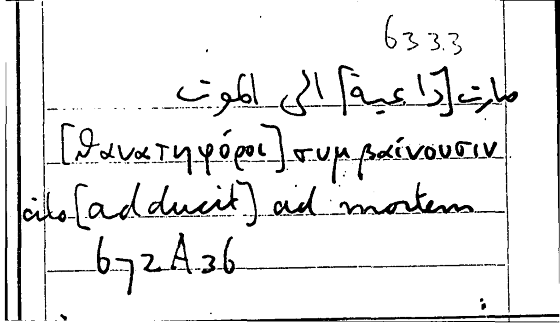 6333
صارت [داعية] الى الموت
[θανατηφόροι] συμβαίνουσιν
cito [adducit] ad mortem
672A36